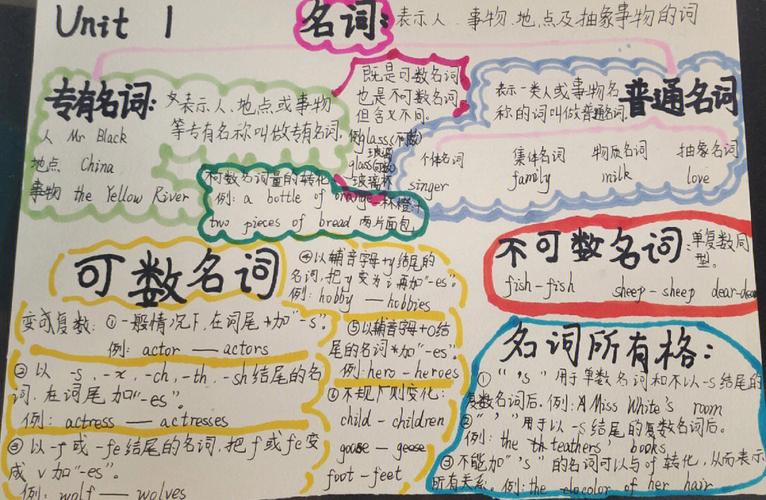 Unit 1
名词: 表示人、事物、地、点及抽象事物的词
专有名词: 表示人、地点或事物
等专有名称叫做专有名词.
人 Mr Black
地点 China
事物 the Yellow River
既是可数名词
也是不可数名词
但含义不同。
例glass(不可数)
玻璃
glass(可数)
玻璃杯
普通名词
表示一类人或事物名
称的词叫做普通名词.
个体名词 集体名词 物质名词 抽象名词
singer family milk love
不可数名词量的转化
例: a bottle of orange 一杯橙汁
two pieces of bread 两片面包
可数名词
变成复数: ①一般情况下,在词尾+加"-s"。
例: actor —— actors
②以 -s, -x, -ch, -th, -sh结尾的名
词,在词尾加"-es"。
例: actress — actresses
③以-f或-fe结尾的名词,把f或fe变
成v加"-es"。
例: wolf —— wolves
④以辅音字母+y结尾的
名词,把y变为i再加"-es"。
例: hobby — hobbies
⑤以辅音字母+o结
尾的名词+加"-es"。
例: hero - heroes
⑥不规则变化:
child - children
goose - geese
foot - feet
不可数名词: 单复数同
型。
fish - fish sheep - sheep dear-dear
名词所有格:
①" 's "用于单数名词和不以-s结尾的
复数名词后. 例: A Miss White's room
②" ' "用于以-s结尾的复数名词后。
例: the th teathers' books
③不能加" 's "的名词可以与of 转化,从而表示
所有关系. 例: the color of her hair